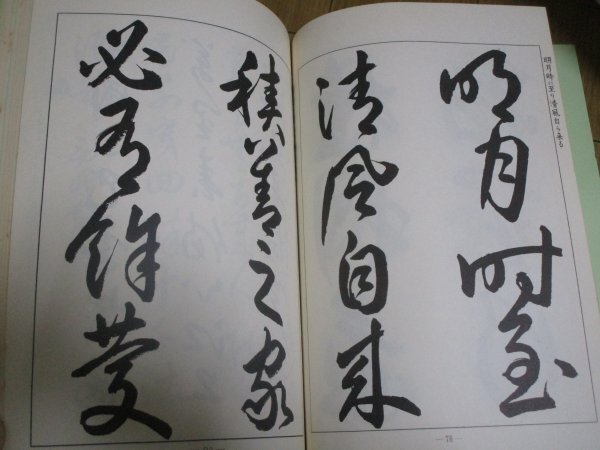 明月時至り清風自ら来る
明月时至
清风自来
— 78 —
積善之家
必有餘慶